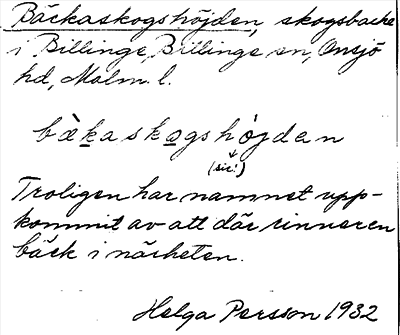 Bäckaskogshöjden, skogsbacke
i Billinge, Billinge sn, Onsjö
hd, Malm. l.
bàkaskogshöjden
(sic!)
Troligen har namnet upp-
kommit av att där rinner en
bäck i närheten.
Helga Persson 1932